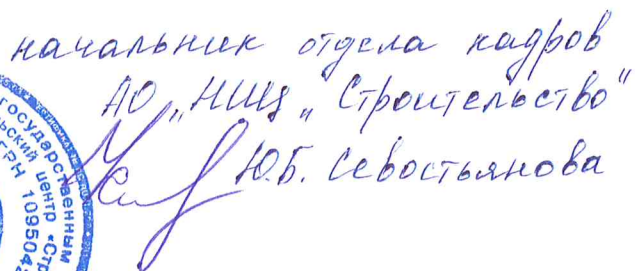 начальник отдела кадров
АО „НИЦ „Строительство"
Ю.Б. Севостьянова
государственным
ский центр «Ст
ГРН 109504